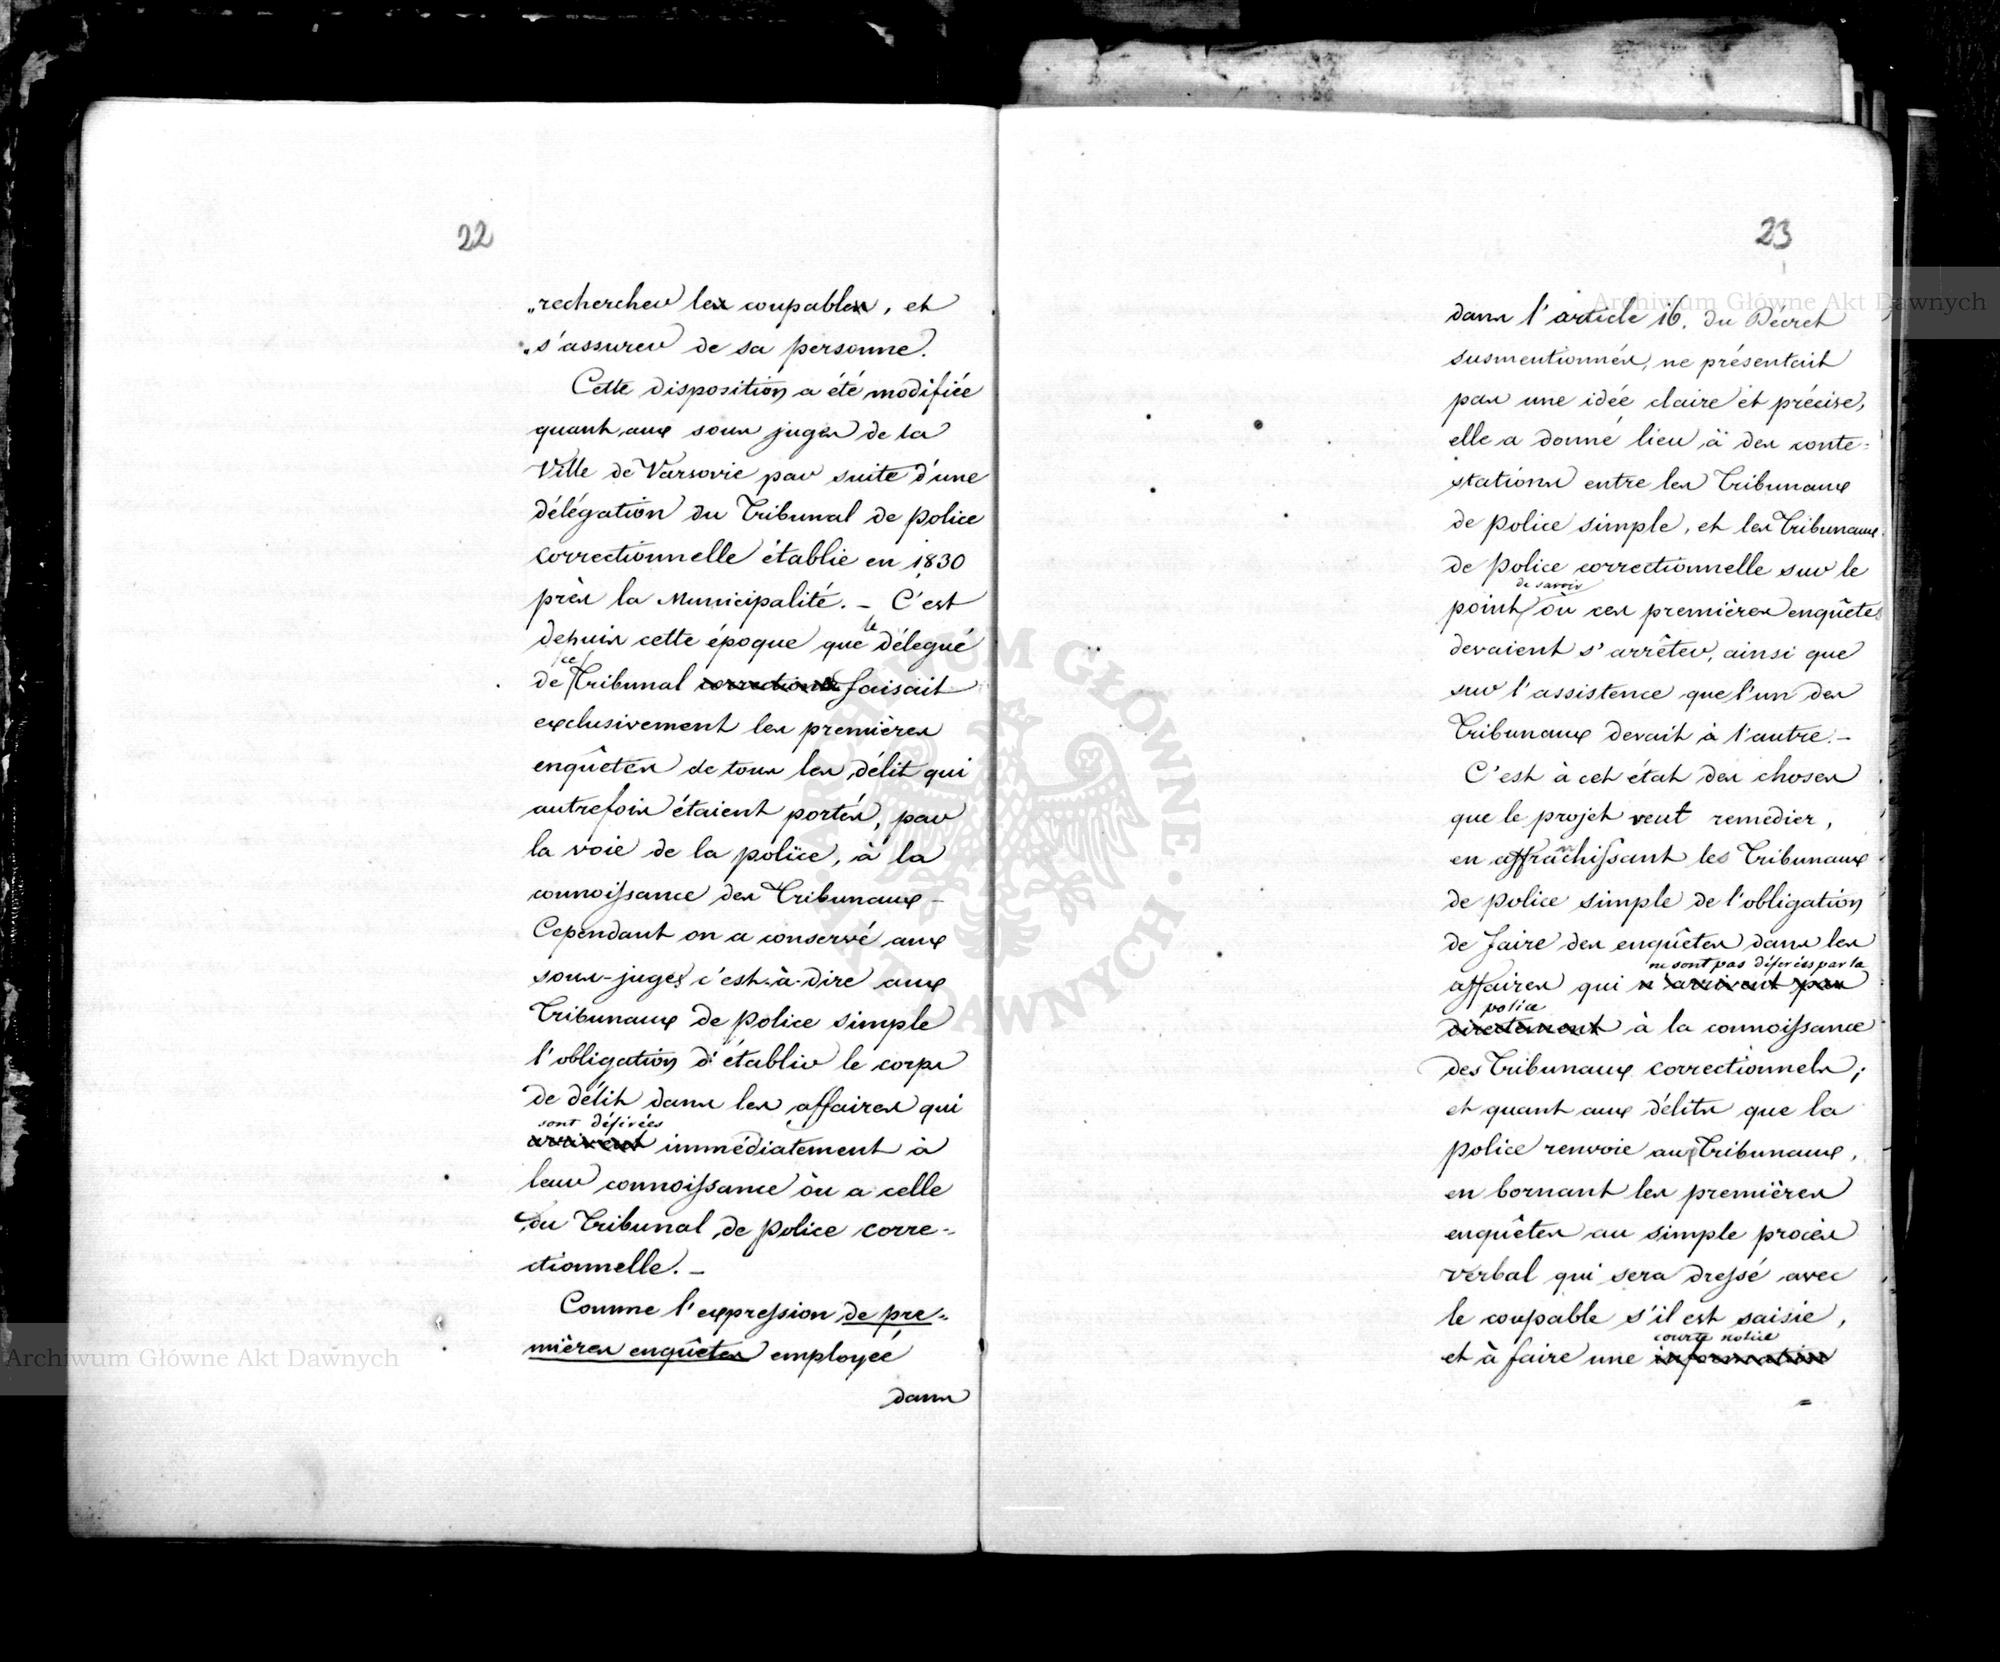 22
„rechercher les coupables, et
„s'assurer de sa personne.
Cette disposition a été modifiée
quant aux sous juges de la
Ville de Varsovie par suite d'une
délégation du Tribunal de police
correctionnelle établie en 1830
près la Municipalité. – C'est
le
depuis cette époque que délegué
ce
de Tribunal faisait
exclusivement les premières
enquêtes de tous les délit qui
autrefois étaient portés, par
la voie de la police, à la
connoissance des Tribunaux –
Cependant on a conservé aux
sous-juges c'est-à-dire aux
Tribunaux de police simple
l'obligation d'établir le corps
de délit dans les affaires qui
sont déférées
arrivent immédiatement à
leur connoissance òu a celle
du Tribunal de police corre-
ctionnelle. –
Comme l'expression de pre-
mières enquêtes employée
dans
23
dans l'article 16. du Décret
susmentionnés, ne présentait
pas une idée claire et précise,
elle a donné lieu à des conte-
stations entre les Tribunaux
de police simple, et les Tribunaux
de police correctionnelle sur le
de savoir
point où ces premières enquêtes
devaient s'arrêter, ainsi que
sur l'assistence que l'un des
Tribunaux devait à l'autre. –
C'est à cet état des choses
que le projet veut remedier,
en affrachissant les Tribunaux
de police simple de l'obligation
de faire des enquêtes dans les
ne sont pas déferées par la
affaires qui n'arrivent pas
police
directement à la connoissance
des Tribunaux correctionnels;
et quant aux délits que la
police renvoie aux Tribunaux,
en bornant les premières
enquêtes au simple procès
verbal qui sera dressé avec
le coupable s'il est saisie,
courte notice
et à faire une information
=
Archiwum Główne Akt Dawnych
Archiwum Główne Akt Dawnych
ARCHIWUM GŁÓWNE AKT DAWNYCH